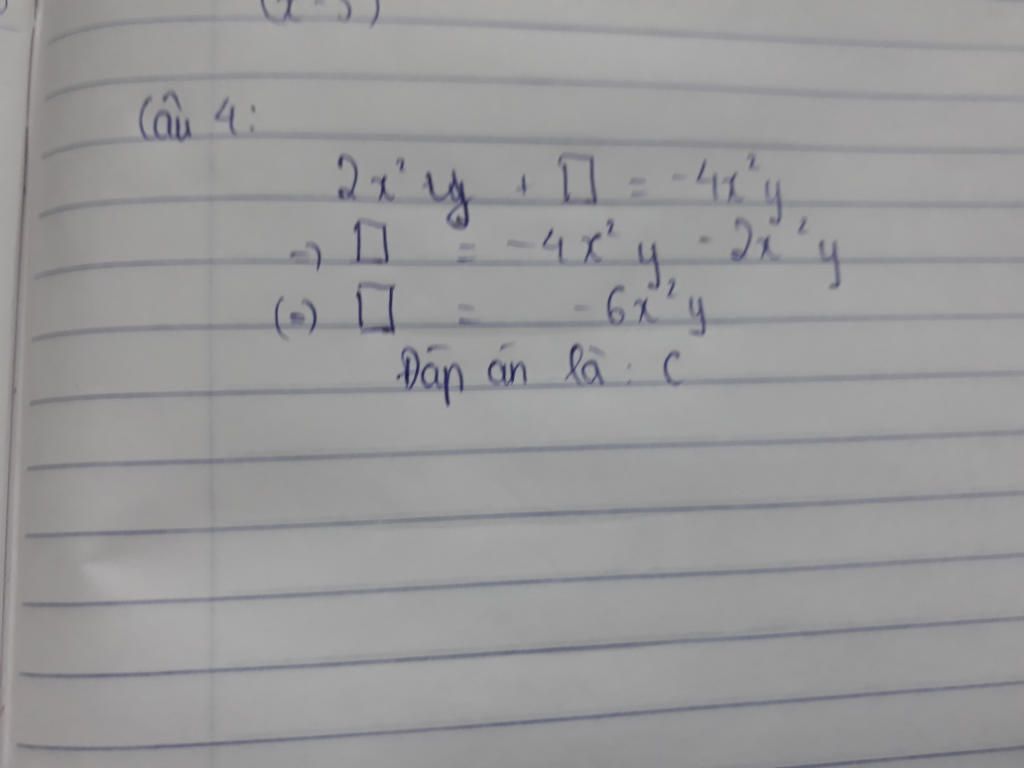 (x - 5)
Câu 4:
2x² y + □ = -4x² y
=> □ = -4x² y - 2x² y
(=) □ = -6x² y
Đáp án là : C